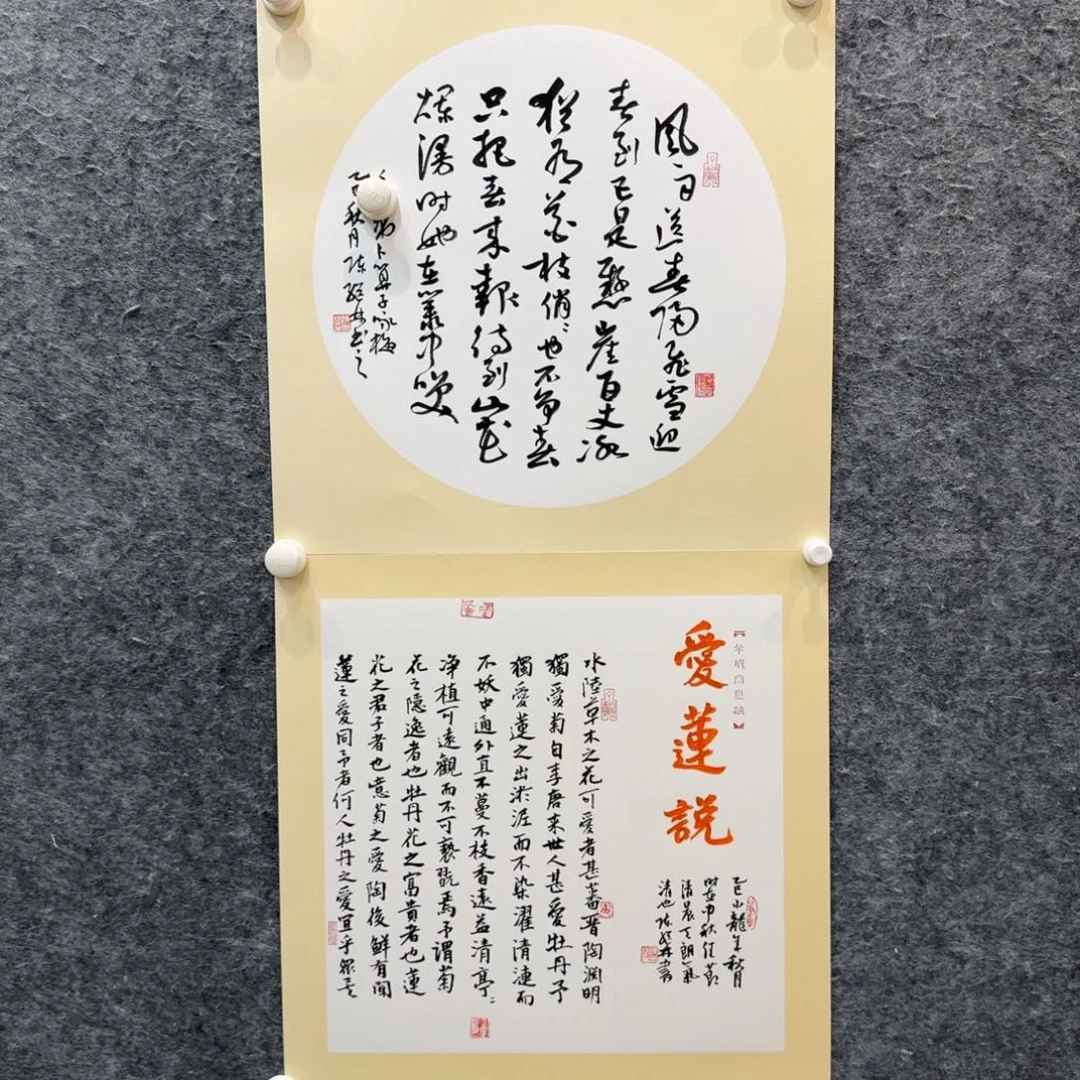 风雨送春归飞雪迎
春到已是懸崖百丈冰
猶有花枝俏〻也不争春
只把春来報待到山花
爛漫时她在叢中笑
卜算子咏梅
乙巳秋月陈书之
愛蓮説
乙巳小龍年秋月
时在中秋佳節
清晨天朗氣
清也陈书
水陸草木之花可愛者甚蕃晋陶渊明
獨愛菊自李唐来世人甚愛牡丹予
獨愛蓮之出淤泥而不染濯清漣而
不妖中通外直不蔓不枝香遠益清亭〻
净植可遠觀而不可褻翫焉予謂菊
花之隱逸者也牡丹花之富貴者也蓮
花之君子者也意菊之愛陶後鮮有聞
蓮之愛同予者何人牡丹之愛宜乎眾矣